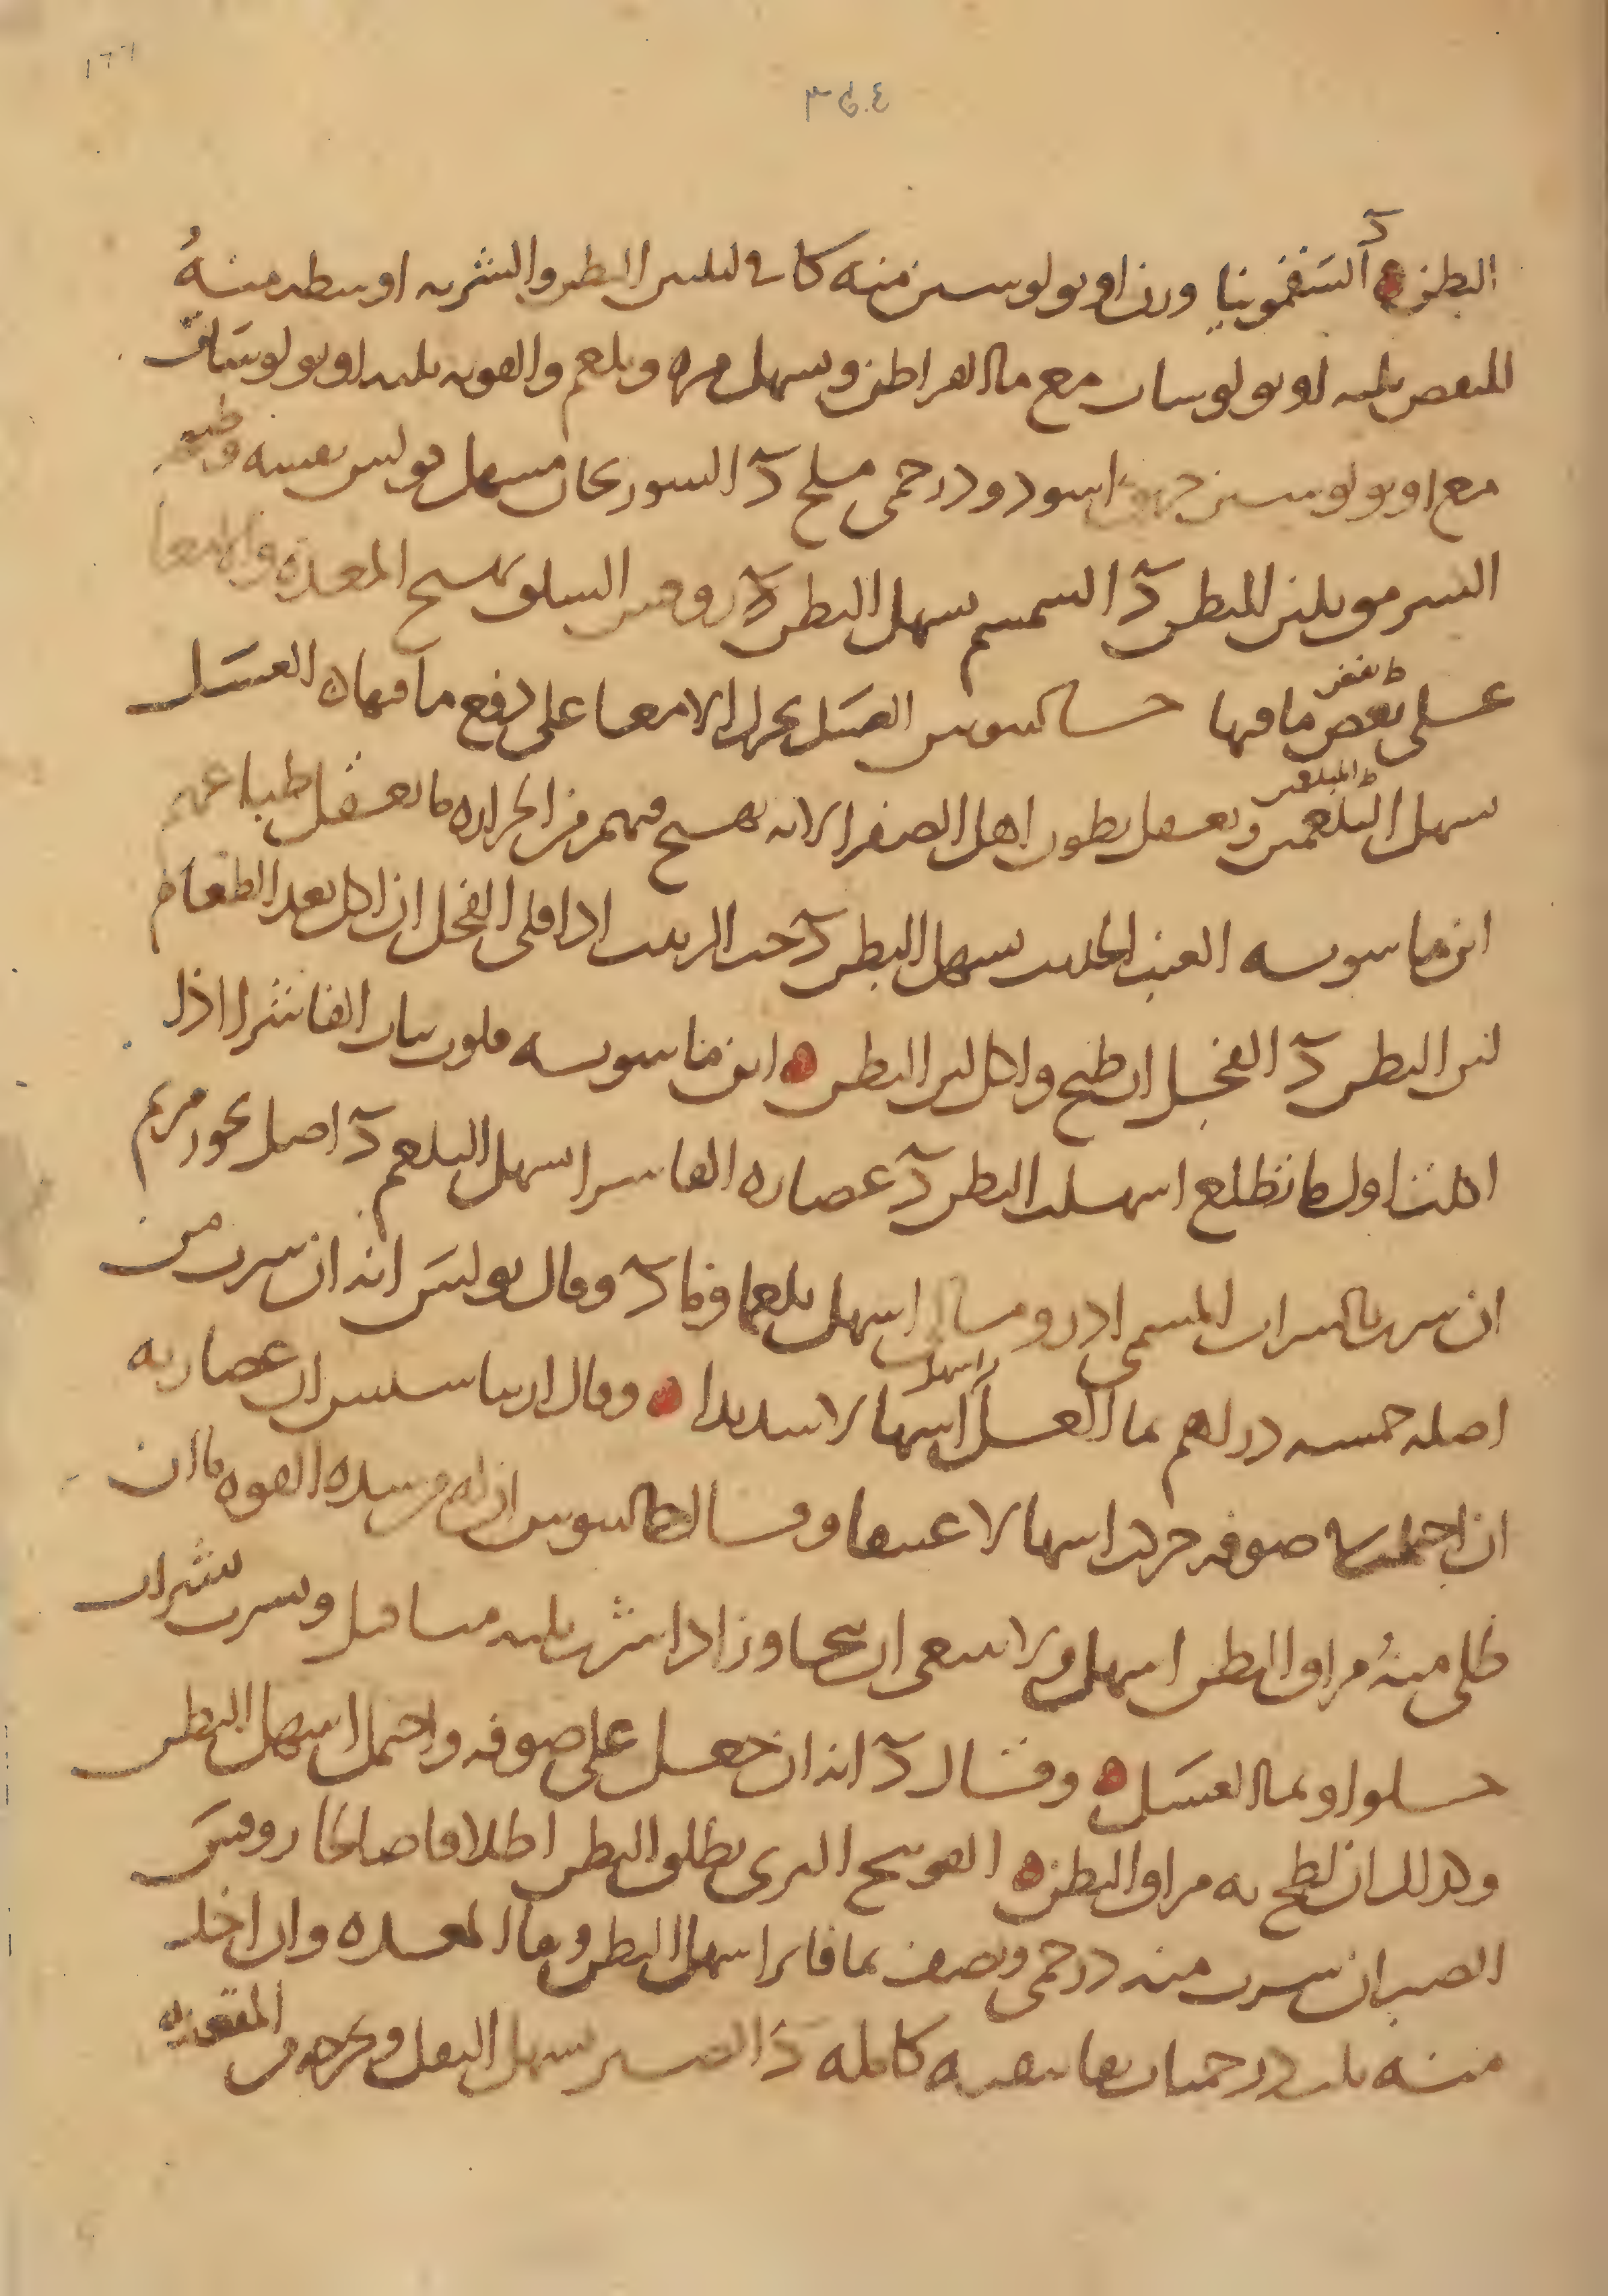 البطن د السقمونيا وزن اوبولوسين منه كاف لتليين البطن والشربه اوسطه منهُ
للنفض ثلثه اوبولوسات مع ماالقراطن ويسهل مره وبلغم والقويه ثلثه اوبولوسات
مع اوبولوسين خربق اسود ودرخمى ملح د السورنجان مسهل بولس نفسه وطبيخه
السرمق يلين البطن د السمسم يسهل البطن د روفس السلق يهيج المعده والامعا
على نفض ما فيها جالينوس العسل يحرك الامعا على دفع ما فيها العسل
ط نفض
يسهل البلغمين ويعقل بطون اهل الصفرا لانه يهيج فيهم من الحراره ما يعقل طباعهم
ط المبلغمين
ابن ماسويه العنب الحديث يسهل البطن د حب الزيت اذا قلى الفجل ان اكل بعد الطعام
لين البطن د الفجل ان طبخ واكل لين البطن ابن ماسويه قلوب نبات الفاشرا اذا
اكلت اول ما تطلع اسهلت البطن د عصاره الفاشرا يسهل البلغم د اصل بخور مريم
ان شرب بالشراب المسمى ادرومالى اسهل بلغما وما د وقال بولس انه ان شرب من
اصله خمسه دراهم بما العسل اسهل اسهالا شديدا وقال اريباسيس ان عصارته
ان احتملت صوفه حركت اسهالا عنيفا وقال جالينوس ان له من شده القوه ما ان
طلى منهُ مراق البطن اسهل ولا ينبغى ان يجاوز اذا شرب ثلثه مثاقيل ويشرب بشراب
حلو او بما العسل وقال د انه ان جعل على صوفه واحتمل اسهل البطن
وكذلك ان لطخ به مراق البطن الفوتنج البرى يطلق البطن اطلاقا صالحا روفس
الصبر ان شرب منه درخمى ونصف بما فاتر اسهل البطن ونقا المعده وان اخذ
منه ثلث درخميات نقا تنقيه كامله د الصبر يسهل الثفل ويخرجه من المقعده